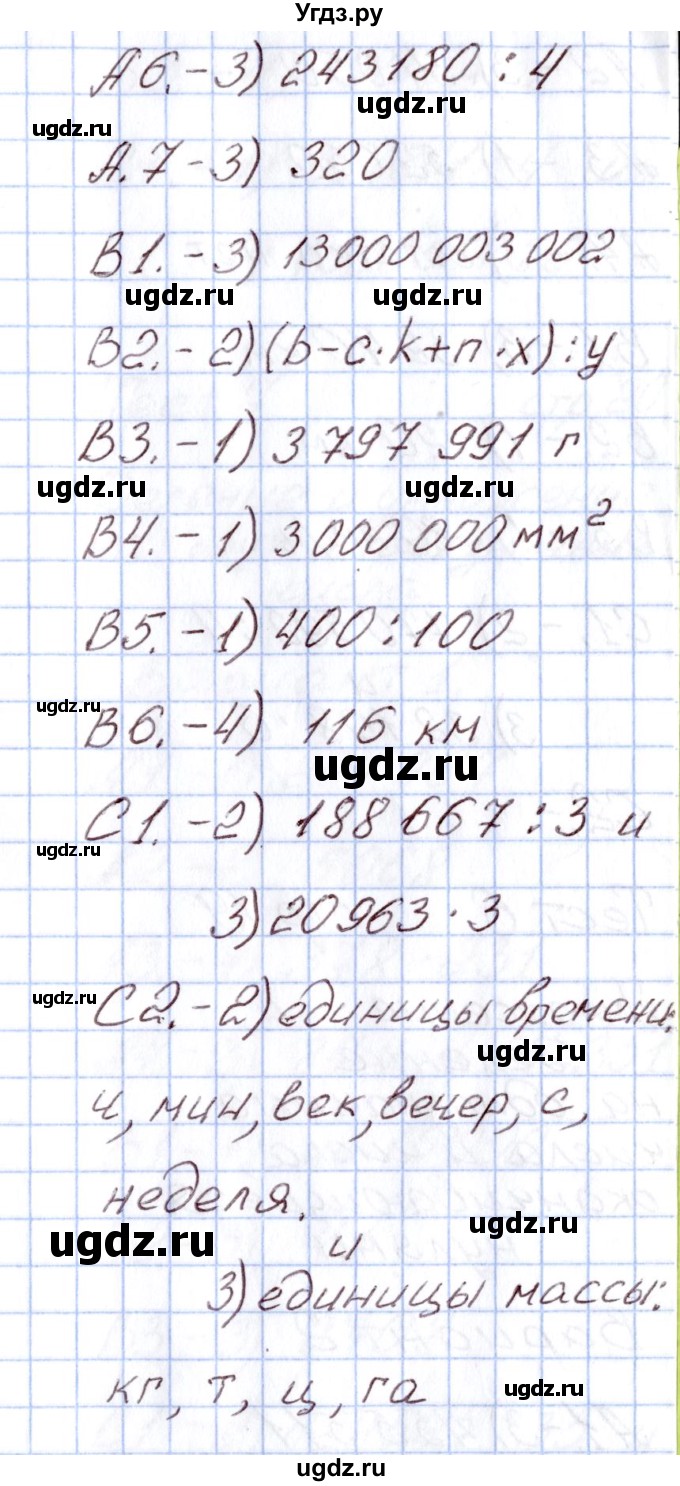 Угдз.ру
А6.-3) 243180 : 4
ugdz.ru
ugdz.ru
А.7-3) 320
В1.-3) 13000 003 002
ugdz.ru ugdz.ru
В2.-2)(b-c·k+n·x):y
В3.-1) 3 797 991 г
ugdz.ru ugdz.ru
В4.-1) 3 000 000 мм²
В5.-1) 400:100
ugdz.ru
В6.-4) 116 км
ugdz.ru
С1.-2) 188 667 : 3 и
ugdz.ru
3) 20 963 · 3
ugdz.ru
С2.-2) единицы времени:
ugdz.ru
ч, мин, век, вечер, с,
неделя.
ugdz.ru
ugdz.ru
и
3) единицы массы:
кг, т, ц, га
ugdz.ru
ugdz.ru